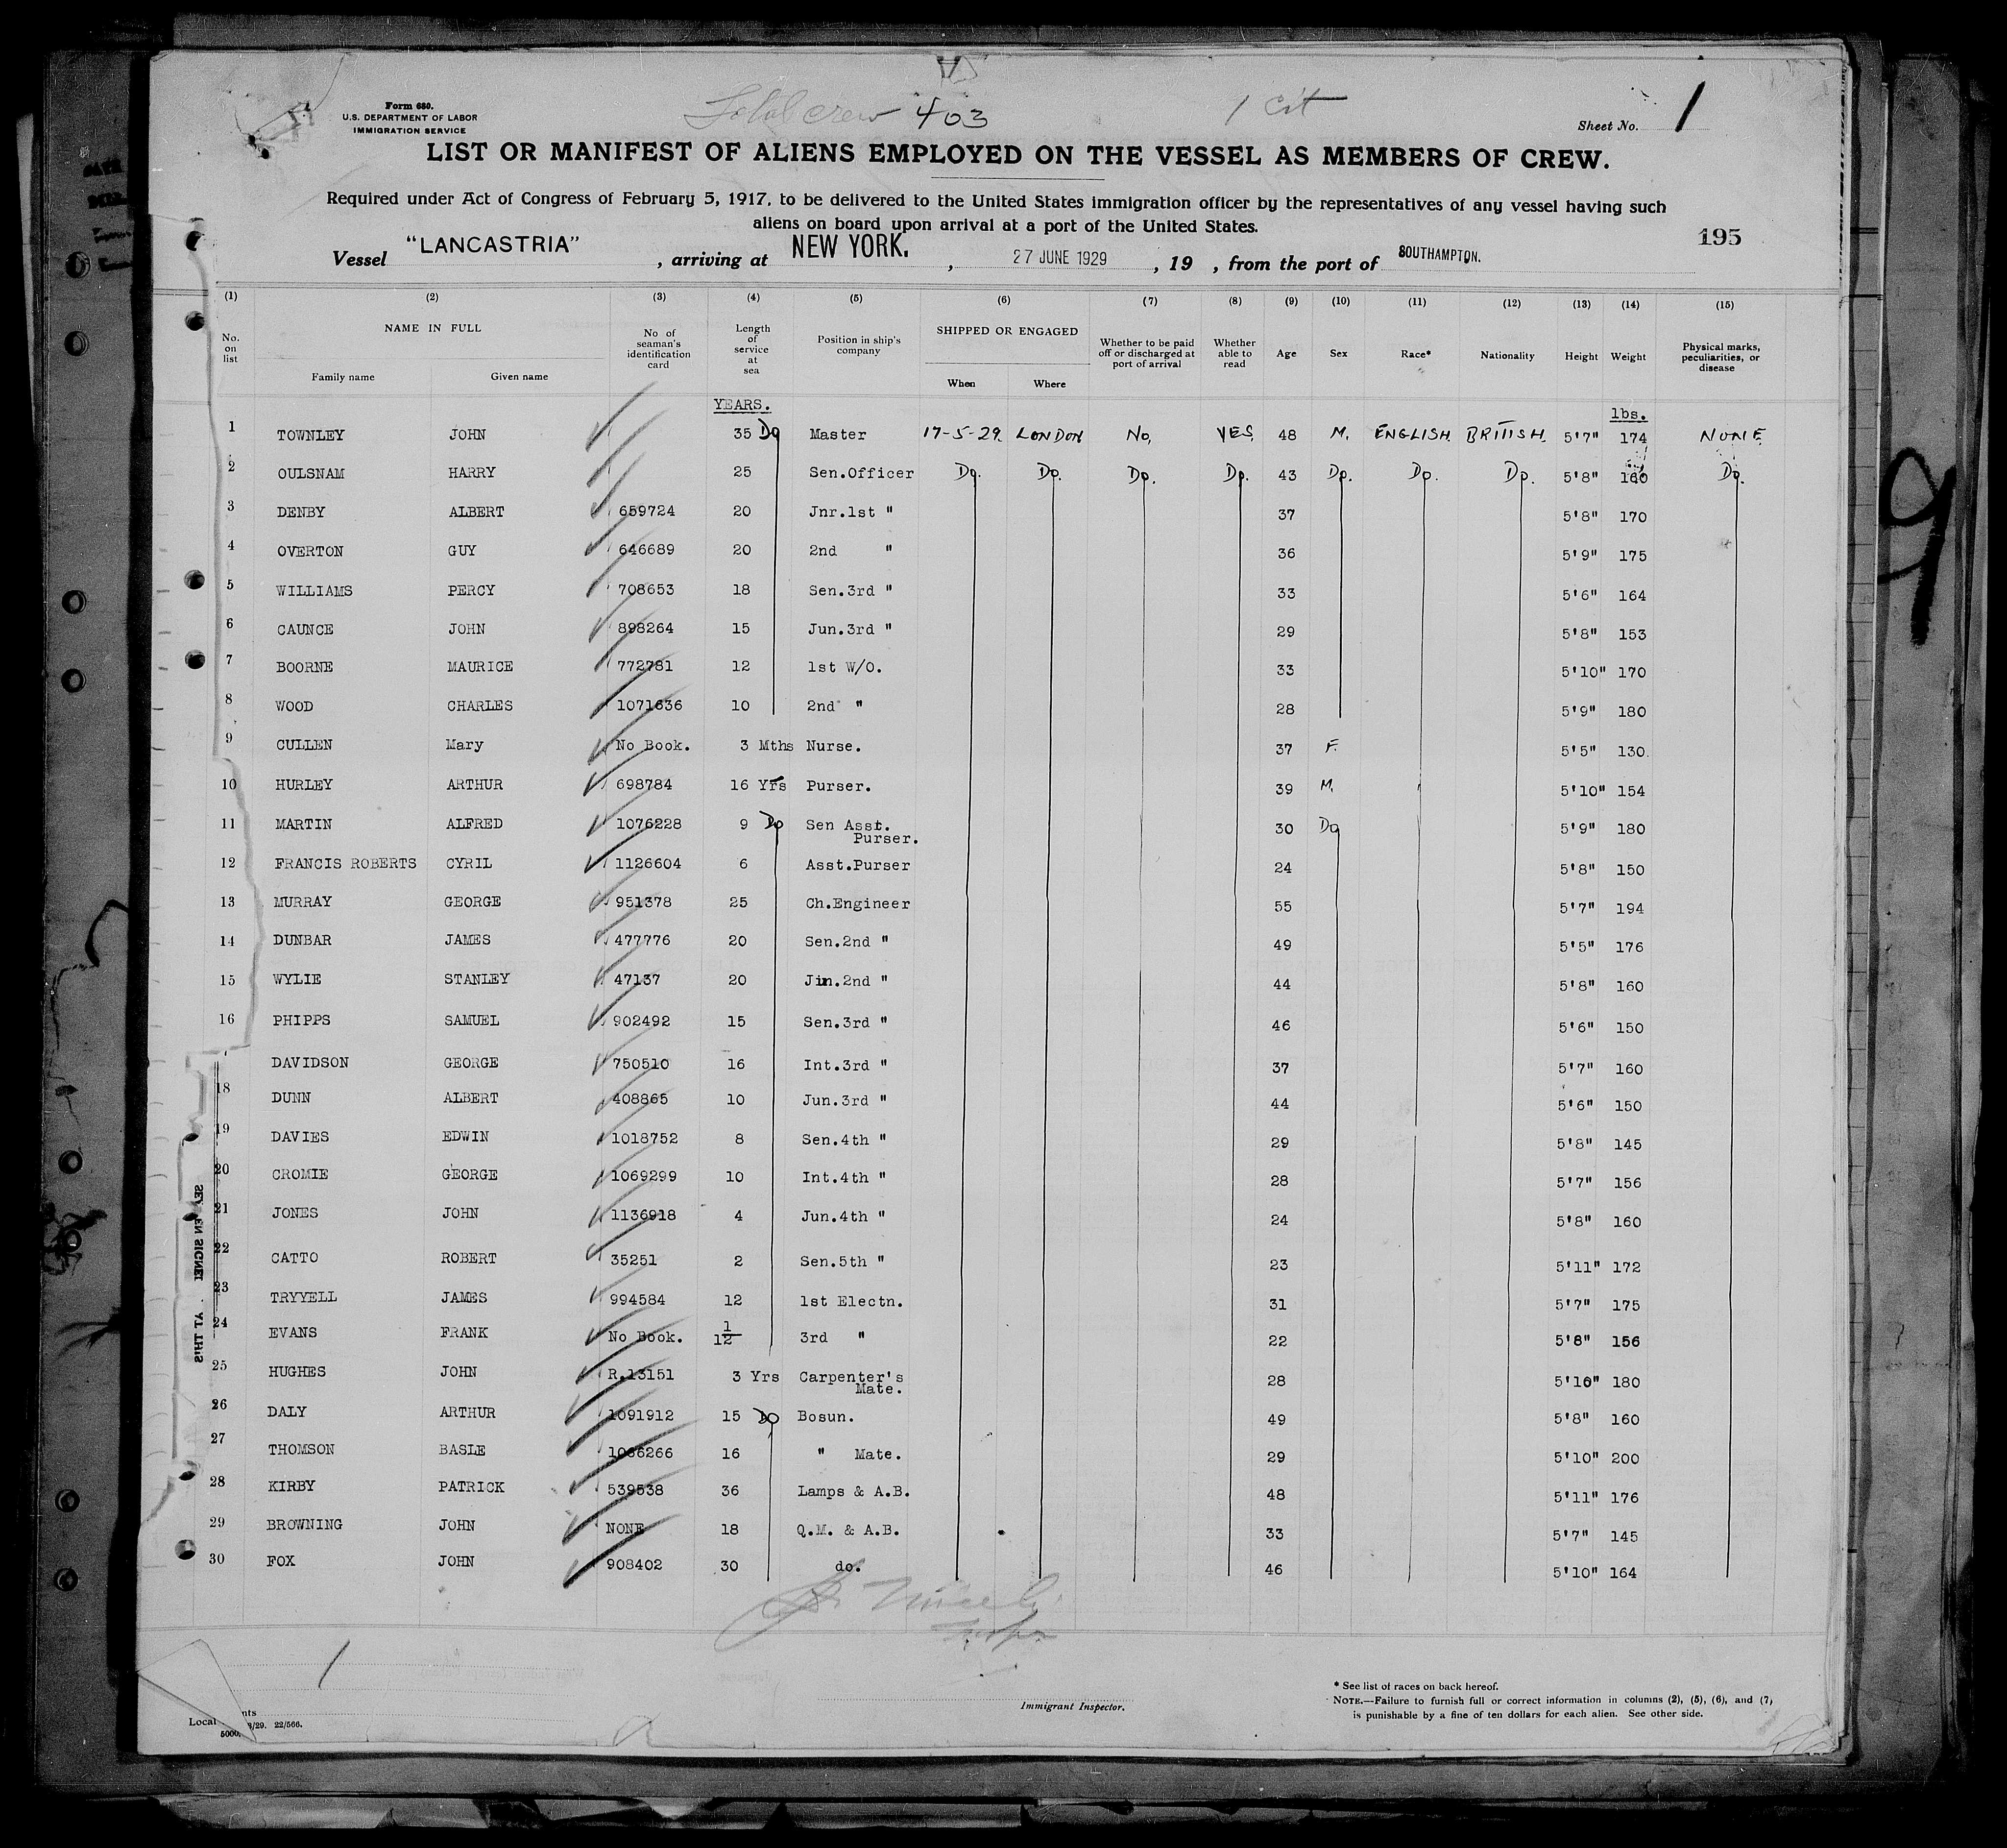 Total crew 403
1 Cit
Form 680.
U.S. DEPARTMENT OF LABOR
IMMIGRATION SERVICE
Sheet No. 1
LIST OR MANIFEST OF ALIENS EMPLOYED ON THE VESSEL AS MEMBERS OF CREW.
Required under Act of Congress of February 5, 1917, to be delivered to the United States immigration officer by the representatives of any vessel having such
aliens on board upon arrival at a port of the United States.
195
Vessel "LANCASTRIA", arriving at NEW YORK., 27 JUNE 1929, 19 , from the port of SOUTHAMPTON.
(1) (2) (3) (4) (5) (6) (7) (8) (9) (10) (11) (12) (13) (14) (15)
No. on list NAME IN FULL Family name Given name No of seaman's identification card Length of service at sea Position in ship's company SHIPPED OR ENGAGED When Where Whether to be paid off or discharged at port of arrival Whether able to read Age Sex Race* Nationality Height Weight Physical marks, peculiarities, or disease
YEARS. lbs.
1 TOWNLEY JOHN 35 Do Master 17-5-29. LONDON No, YES, 48 M. ENGLISH. BRITISH. 5'7" 174 NONE
2 OULSNAM HARRY 25 Sen.Officer Do. Do. Do. Do. 43 Do. Do. Do. 5'8" 160 Do.
3 DENBY ALBERT 659724 20 Jnr.1st " 37 5'8" 170
4 OVERTON GUY 646689 20 2nd " 36 5'9" 175
5 WILLIAMS PERCY 708653 18 Sen.3rd " 33 5'6" 164
6 CAUNCE JOHN 898264 15 Jun.3rd " 29 5'8" 153
7 BOORNE MAURICE 772781 12 1st W/O. 33 5'10" 170
8 WOOD CHARLES 1071636 10 2nd " 28 5'9" 180
9 CULLEN Mary No Book. 3 Mths Nurse. 37 F. 5'5" 130.
10 HURLEY ARTHUR 698784 16 Yrs Purser. 39 M. 5'10" 154
11 MARTIN ALFRED 1076228 9 Do Sen Asst. Purser. 30 Do 5'9" 180
12 FRANCIS ROBERTS CYRIL 1126604 6 Asst.Purser 24 5'8" 150
13 MURRAY GEORGE 951378 25 Ch.Engineer 55 5'7" 194
14 DUNBAR JAMES 477776 20 Sen.2nd " 49 5'5" 176
15 WYLIE STANLEY 47137 20 Jun.2nd " 44 5'8" 160
16 PHIPPS SAMUEL 902492 15 Sen.3rd " 46 5'6" 150
DAVIDSON GEORGE 750510 16 Int.3rd " 37 5'7" 160
18 DUNN ALBERT 408865 10 Jun.3rd " 44 5'6" 150
19 DAVIES EDWIN 1018752 8 Sen.4th " 29 5'8" 145
20 CROMIE GEORGE 1069299 10 Int.4th " 28 5'7" 156
21 JONES JOHN 1136918 4 Jun.4th " 24 5'8" 160
22 CATTO ROBERT 35251 2 Sen.5th " 23 5'11" 172
23 TRYYELL JAMES 994584 12 1st Electn. 31 5'7" 175
24 EVANS FRANK No Book. 1/12 3rd " 22 5'8" 156
25 HUGHES JOHN R.13151 3 Yrs Carpenter's Mate. 28 5'10" 180
26 DALY ARTHUR 1091912 15 Do Bosun. 49 5'8" 160
27 THOMSON BASLE 1066266 16 " Mate. 29 5'10" 200
28 KIRBY PATRICK 539538 36 Lamps & A.B. 48 5'11" 176
29 BROWNING JOHN NONE 18 Q.M. & A.B. 33 5'7" 145
30 FOX JOHN 908402 30 do. 46 5'10" 164
1
Immigrant Inspector.
* See list of races on back hereof.
NOTE.—Failure to furnish full or correct information in columns (2), (5), (6), and (7)
is punishable by a fine of ten dollars for each alien. See other side.
Local
5000. 3/29. 22/566.